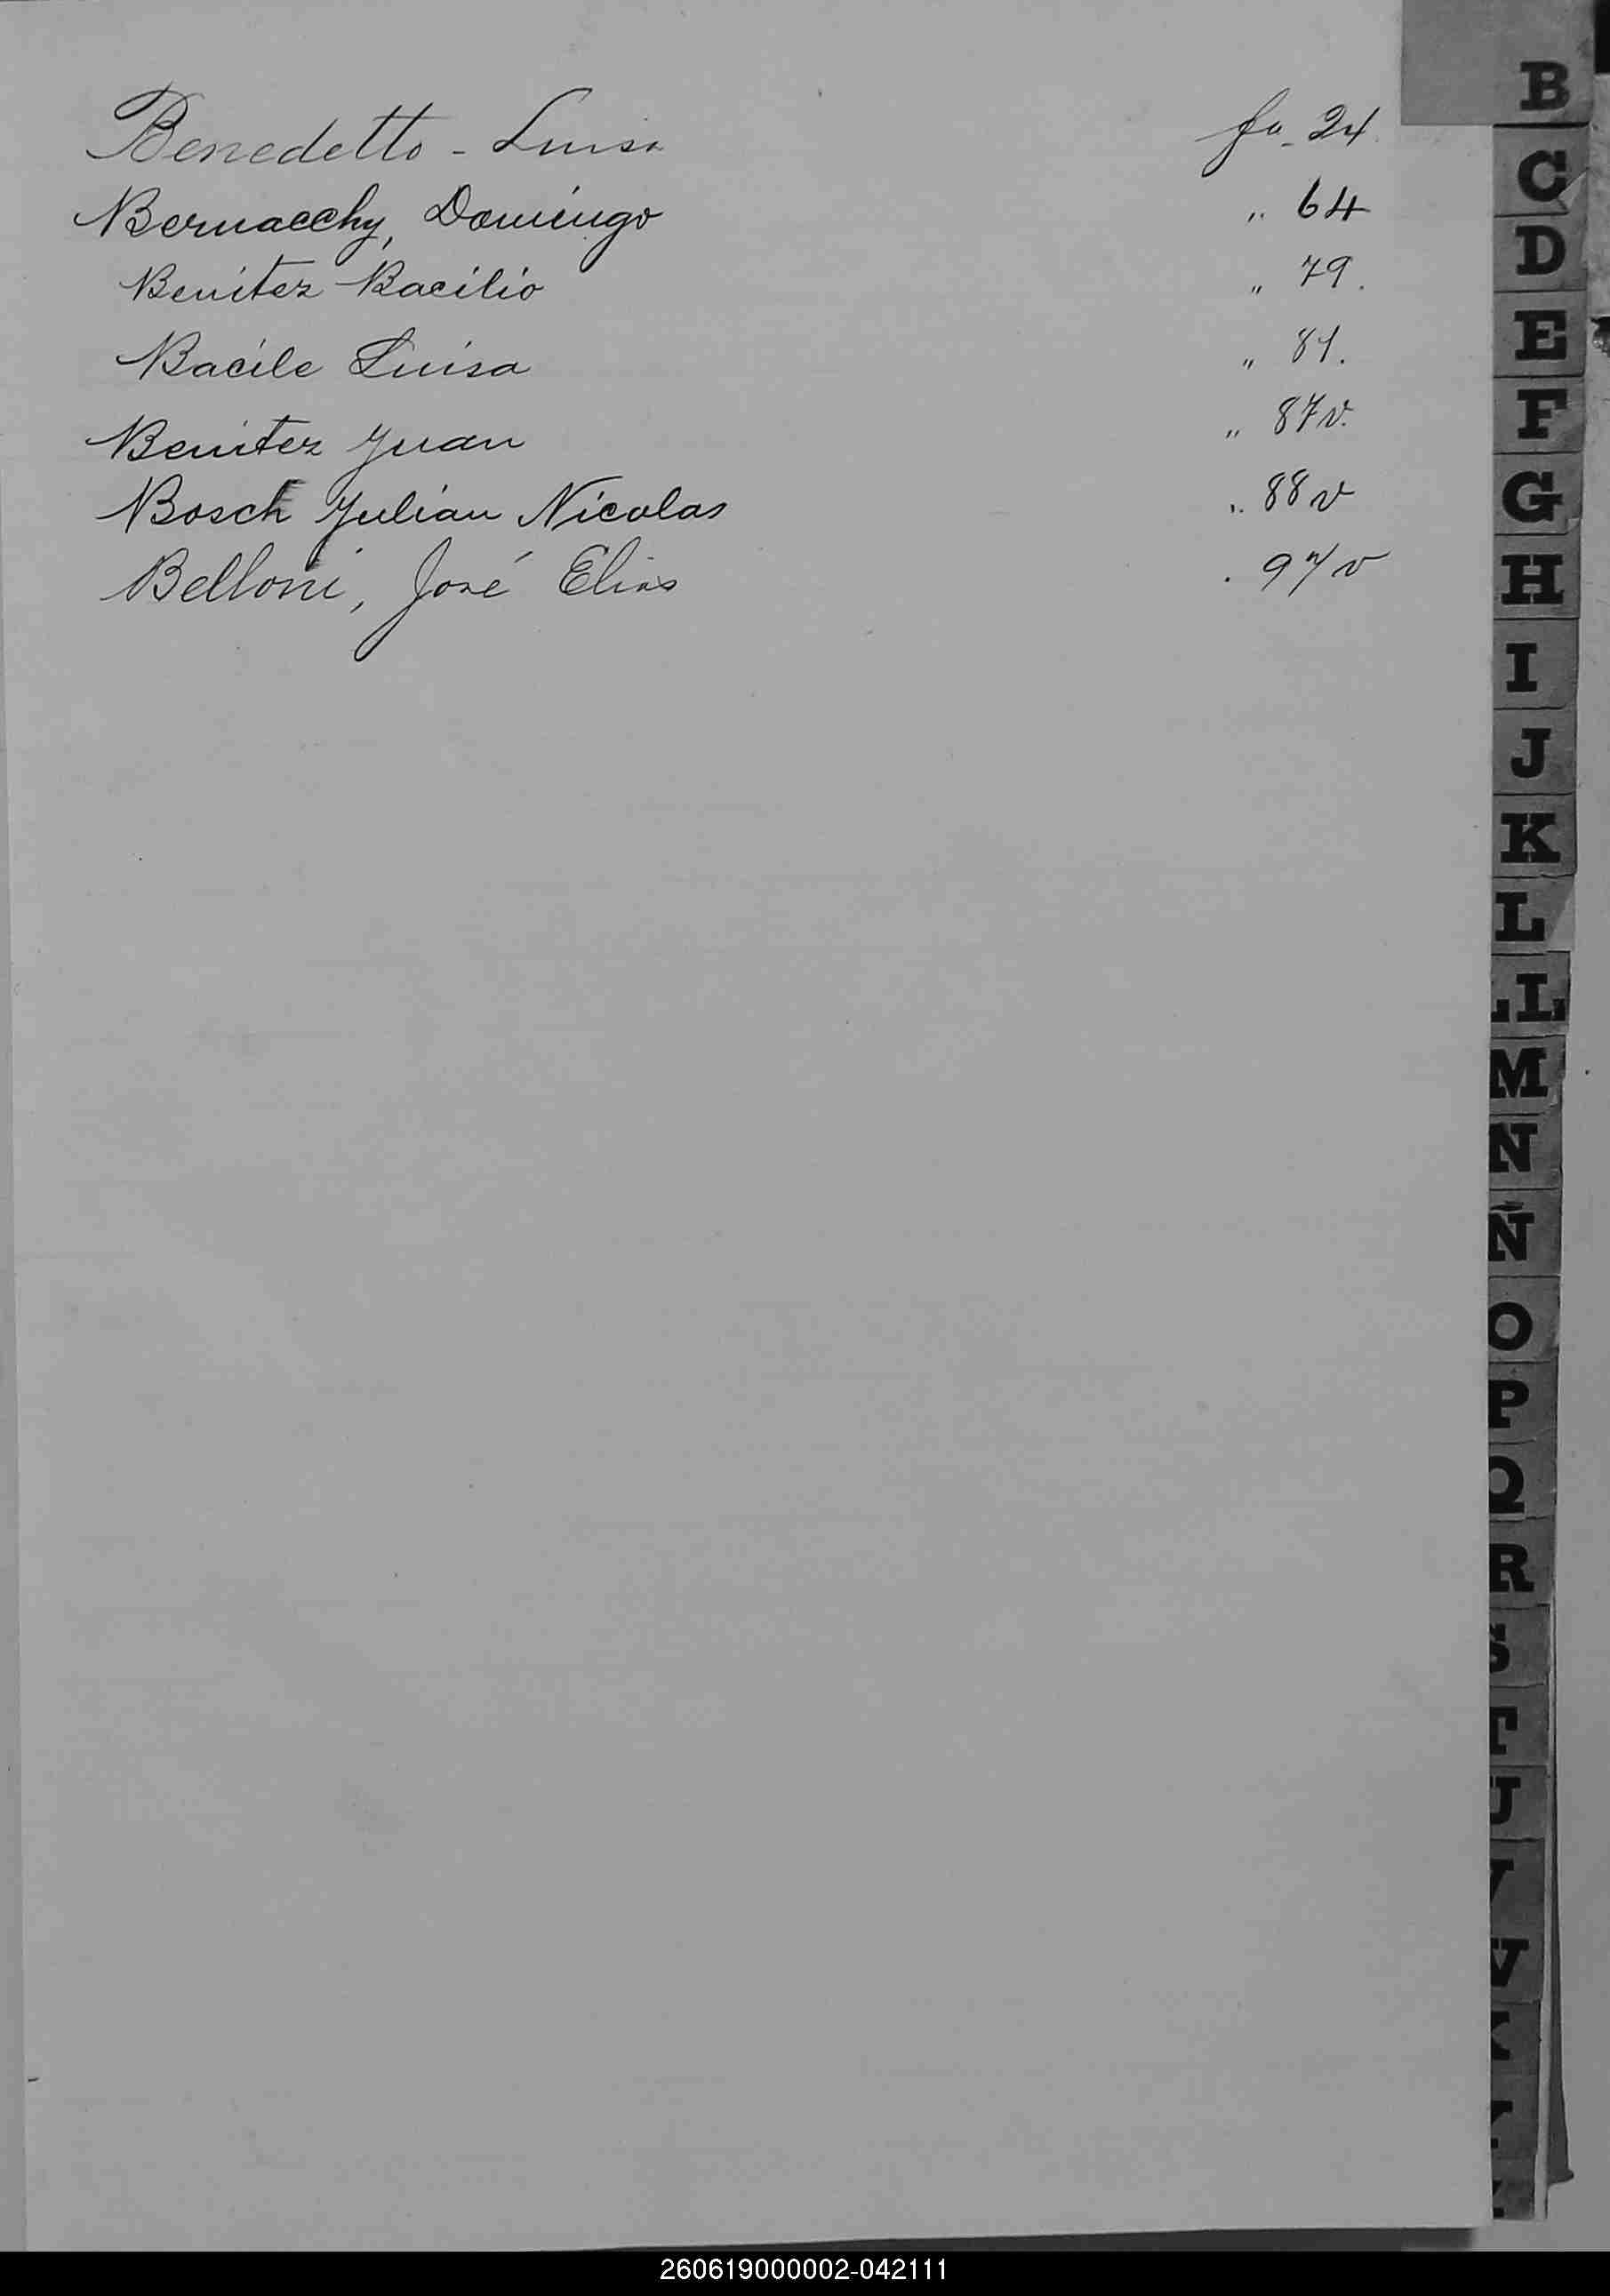 Benedetto - Luisa fo. 24
Bernacchy, Domingo " 64
Benitez Bacilio " 79.
Bacile Luisa " 81.
Benitez Juan " 87v.
Bosch Julian Nicolas " 88v
Belloni, José Elias " 97v
B
C
D
E
F
G
H
I
J
K
L
LL
M
N
Ñ
O
P
Q
R
S
T
U
V
260619000002-042111